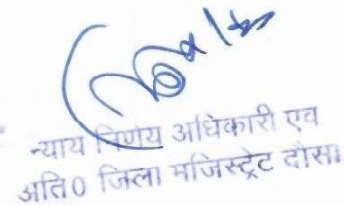 न्याय निर्णय अधिकारी एव
अति0 जिला मजिस्ट्रेट दौसा